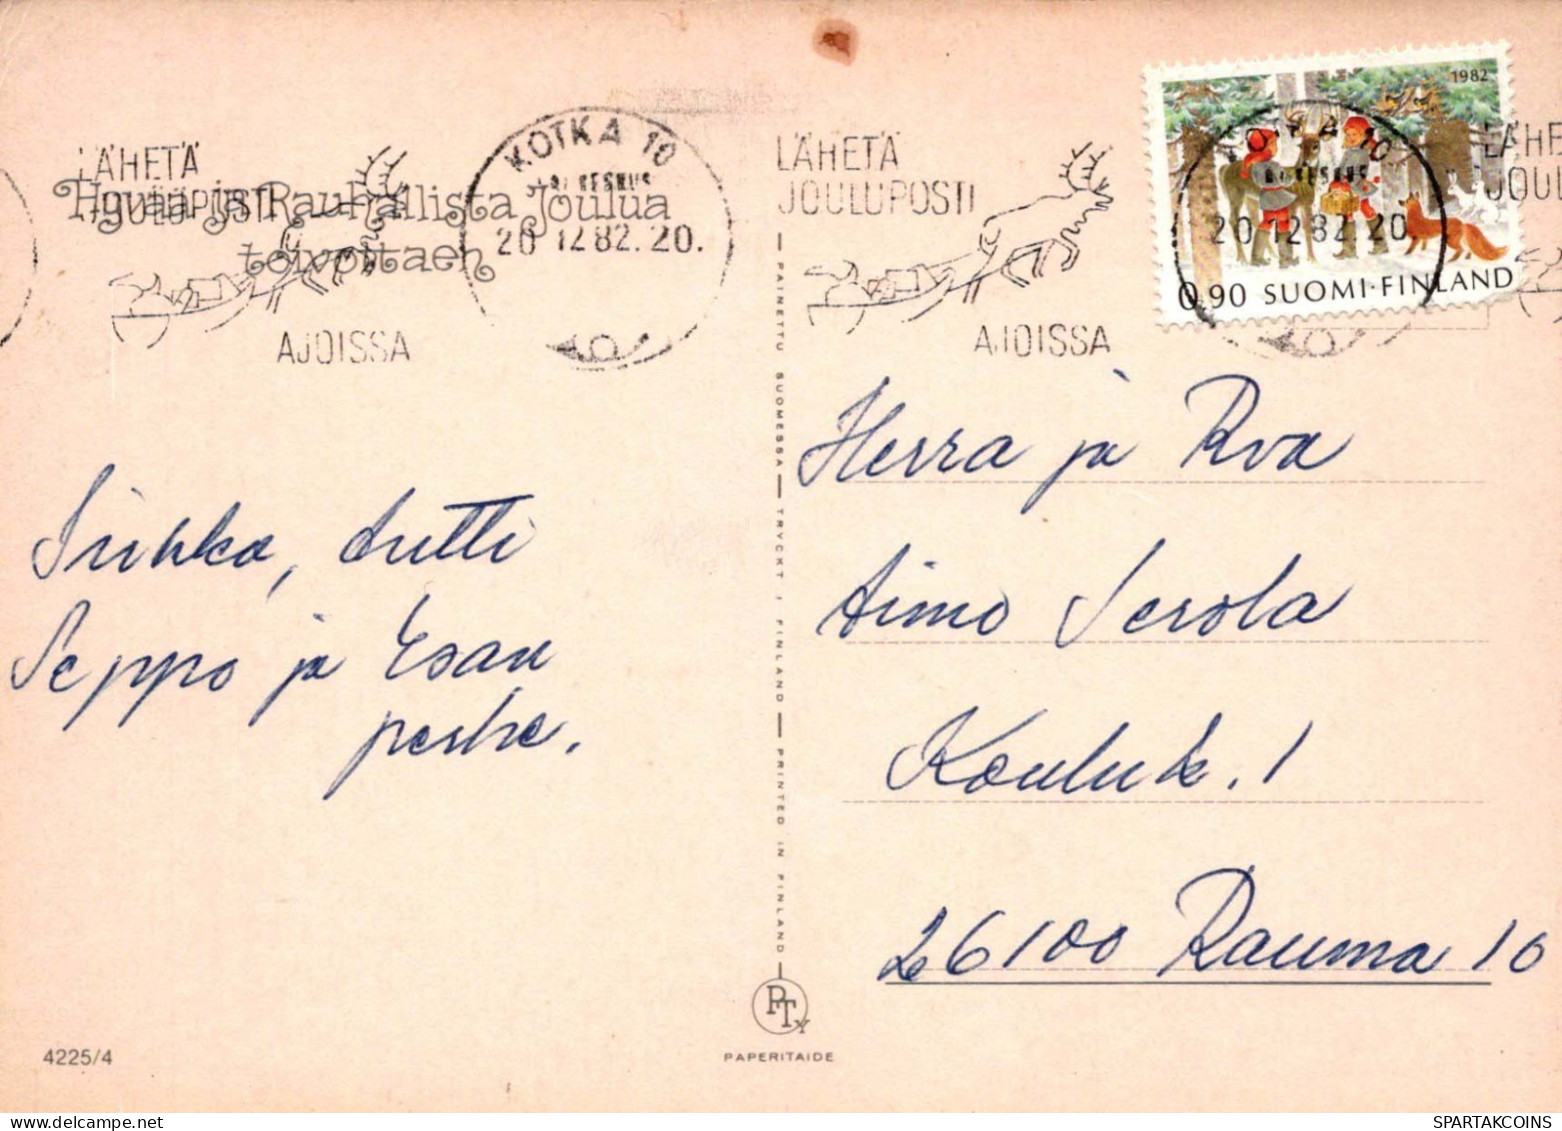 LÄHETÄ
JOULUPOSTI
AJOISSA
KOTKA 10
20.12 82.20.
Hyvää ja Rauhallista Joulua
toivottaen
LÄHETÄ
JOULUPOSTI
AJOISSA
KOTKA 10
20.12 82.20
1982
0,90 SUOMI·FINLAND
Sirkka, Antti
Seppo ja Esan
perhe.
PAINETTU SUOMESSA — TRYCKT I FINLAND — PRINTED IN FINLAND
Herra ja Rva
Aimo Serola
Kouluk. 1
26100 Rauma 10
PTy
PAPERITAIDE
4225/4
SPARTAKCOINS